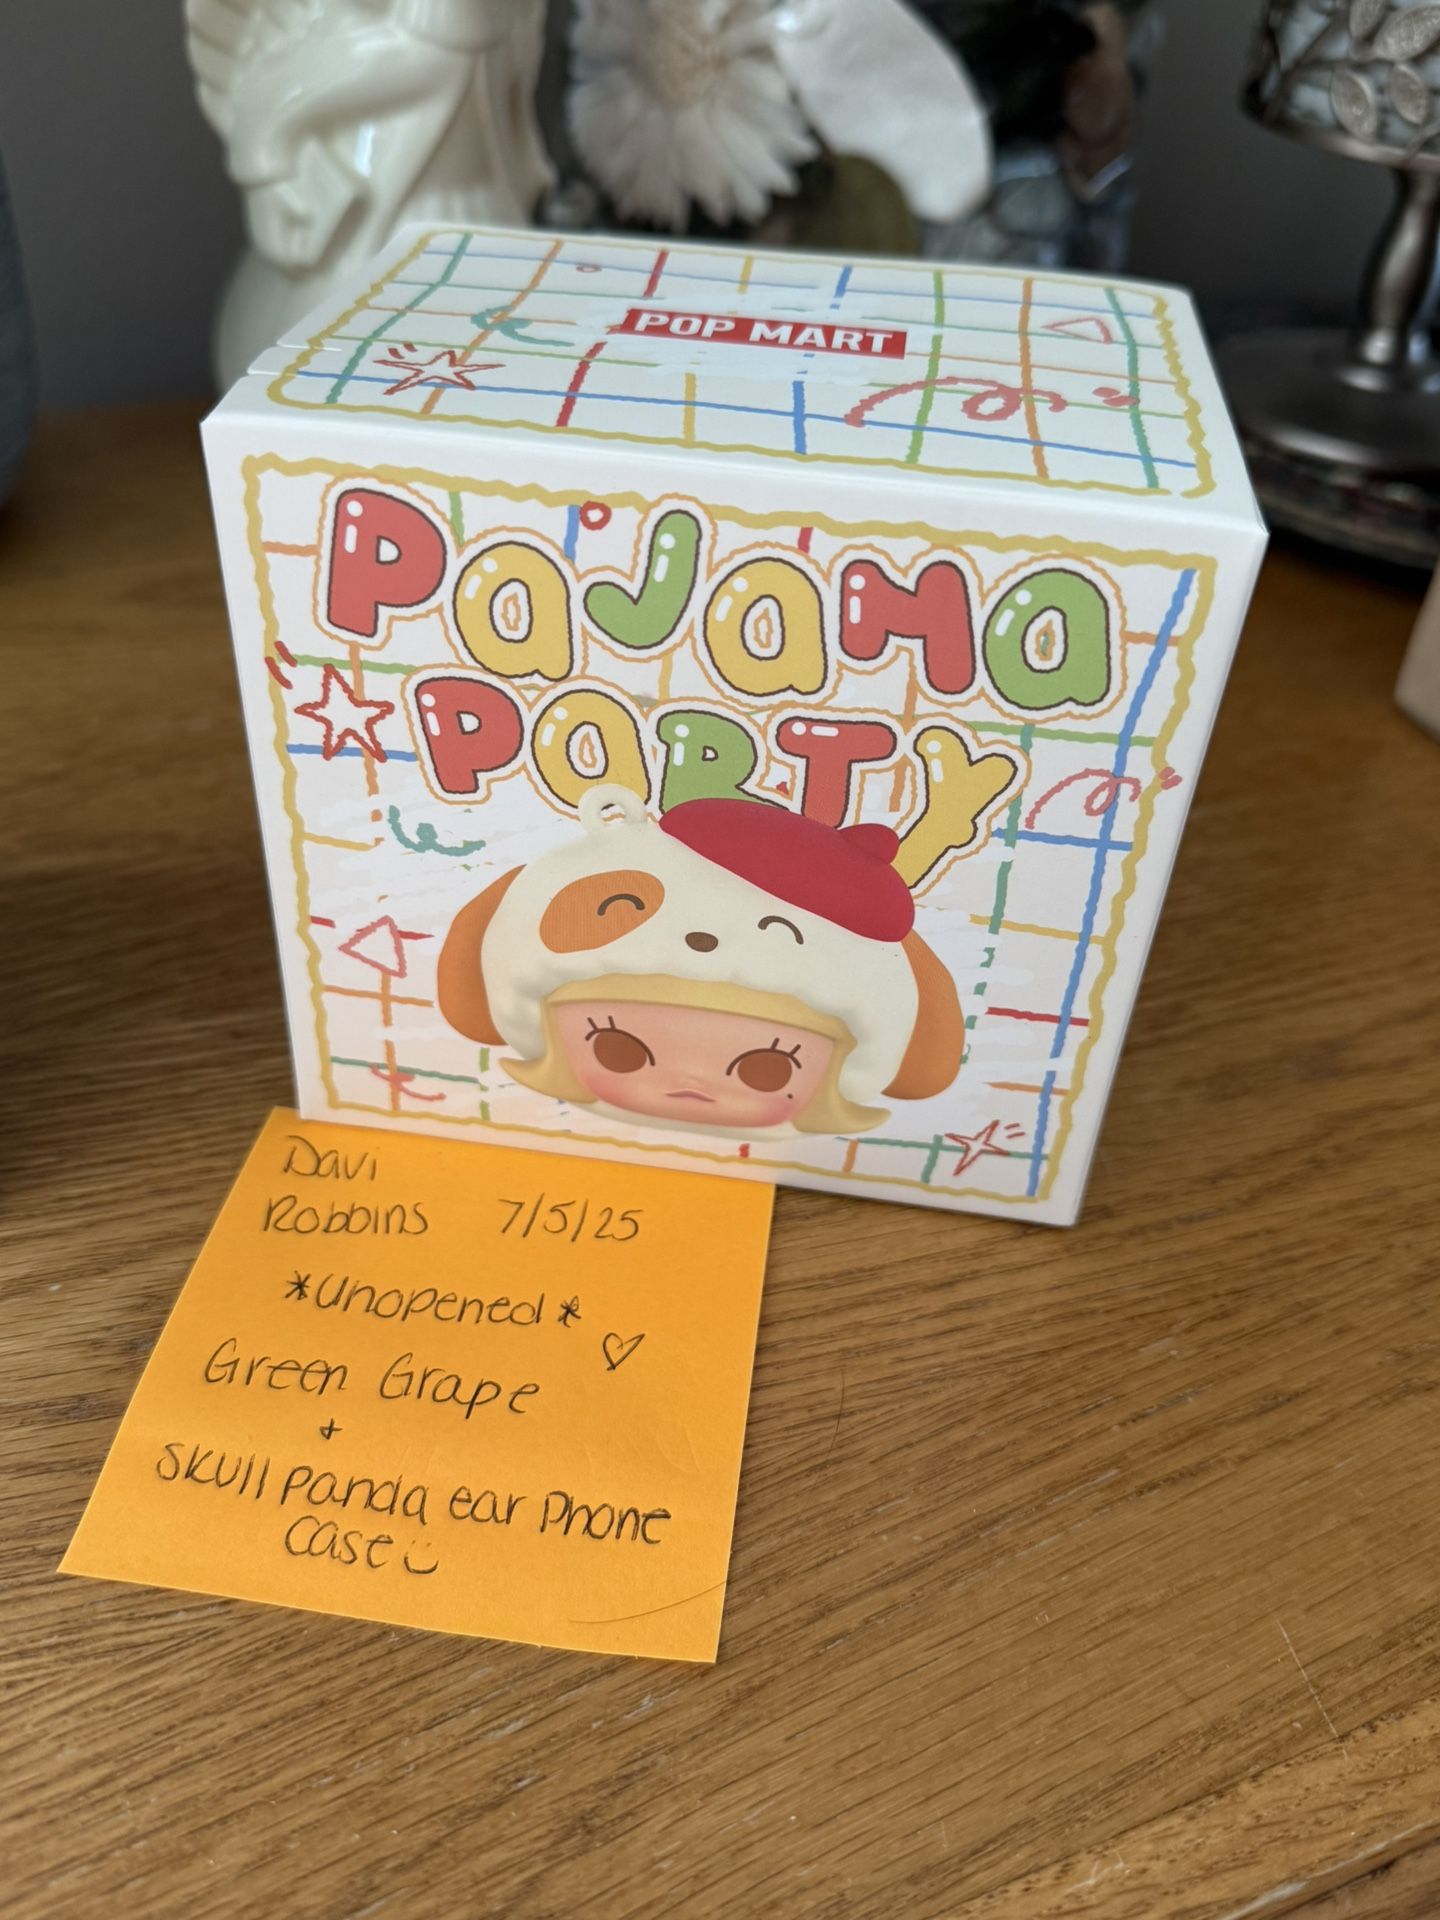 POP MART
PAJAMA
PARTY
Davi
Robbins 7/5/25
*Unopened*
♡
Green Grape
+
Skull panda ear phone
case